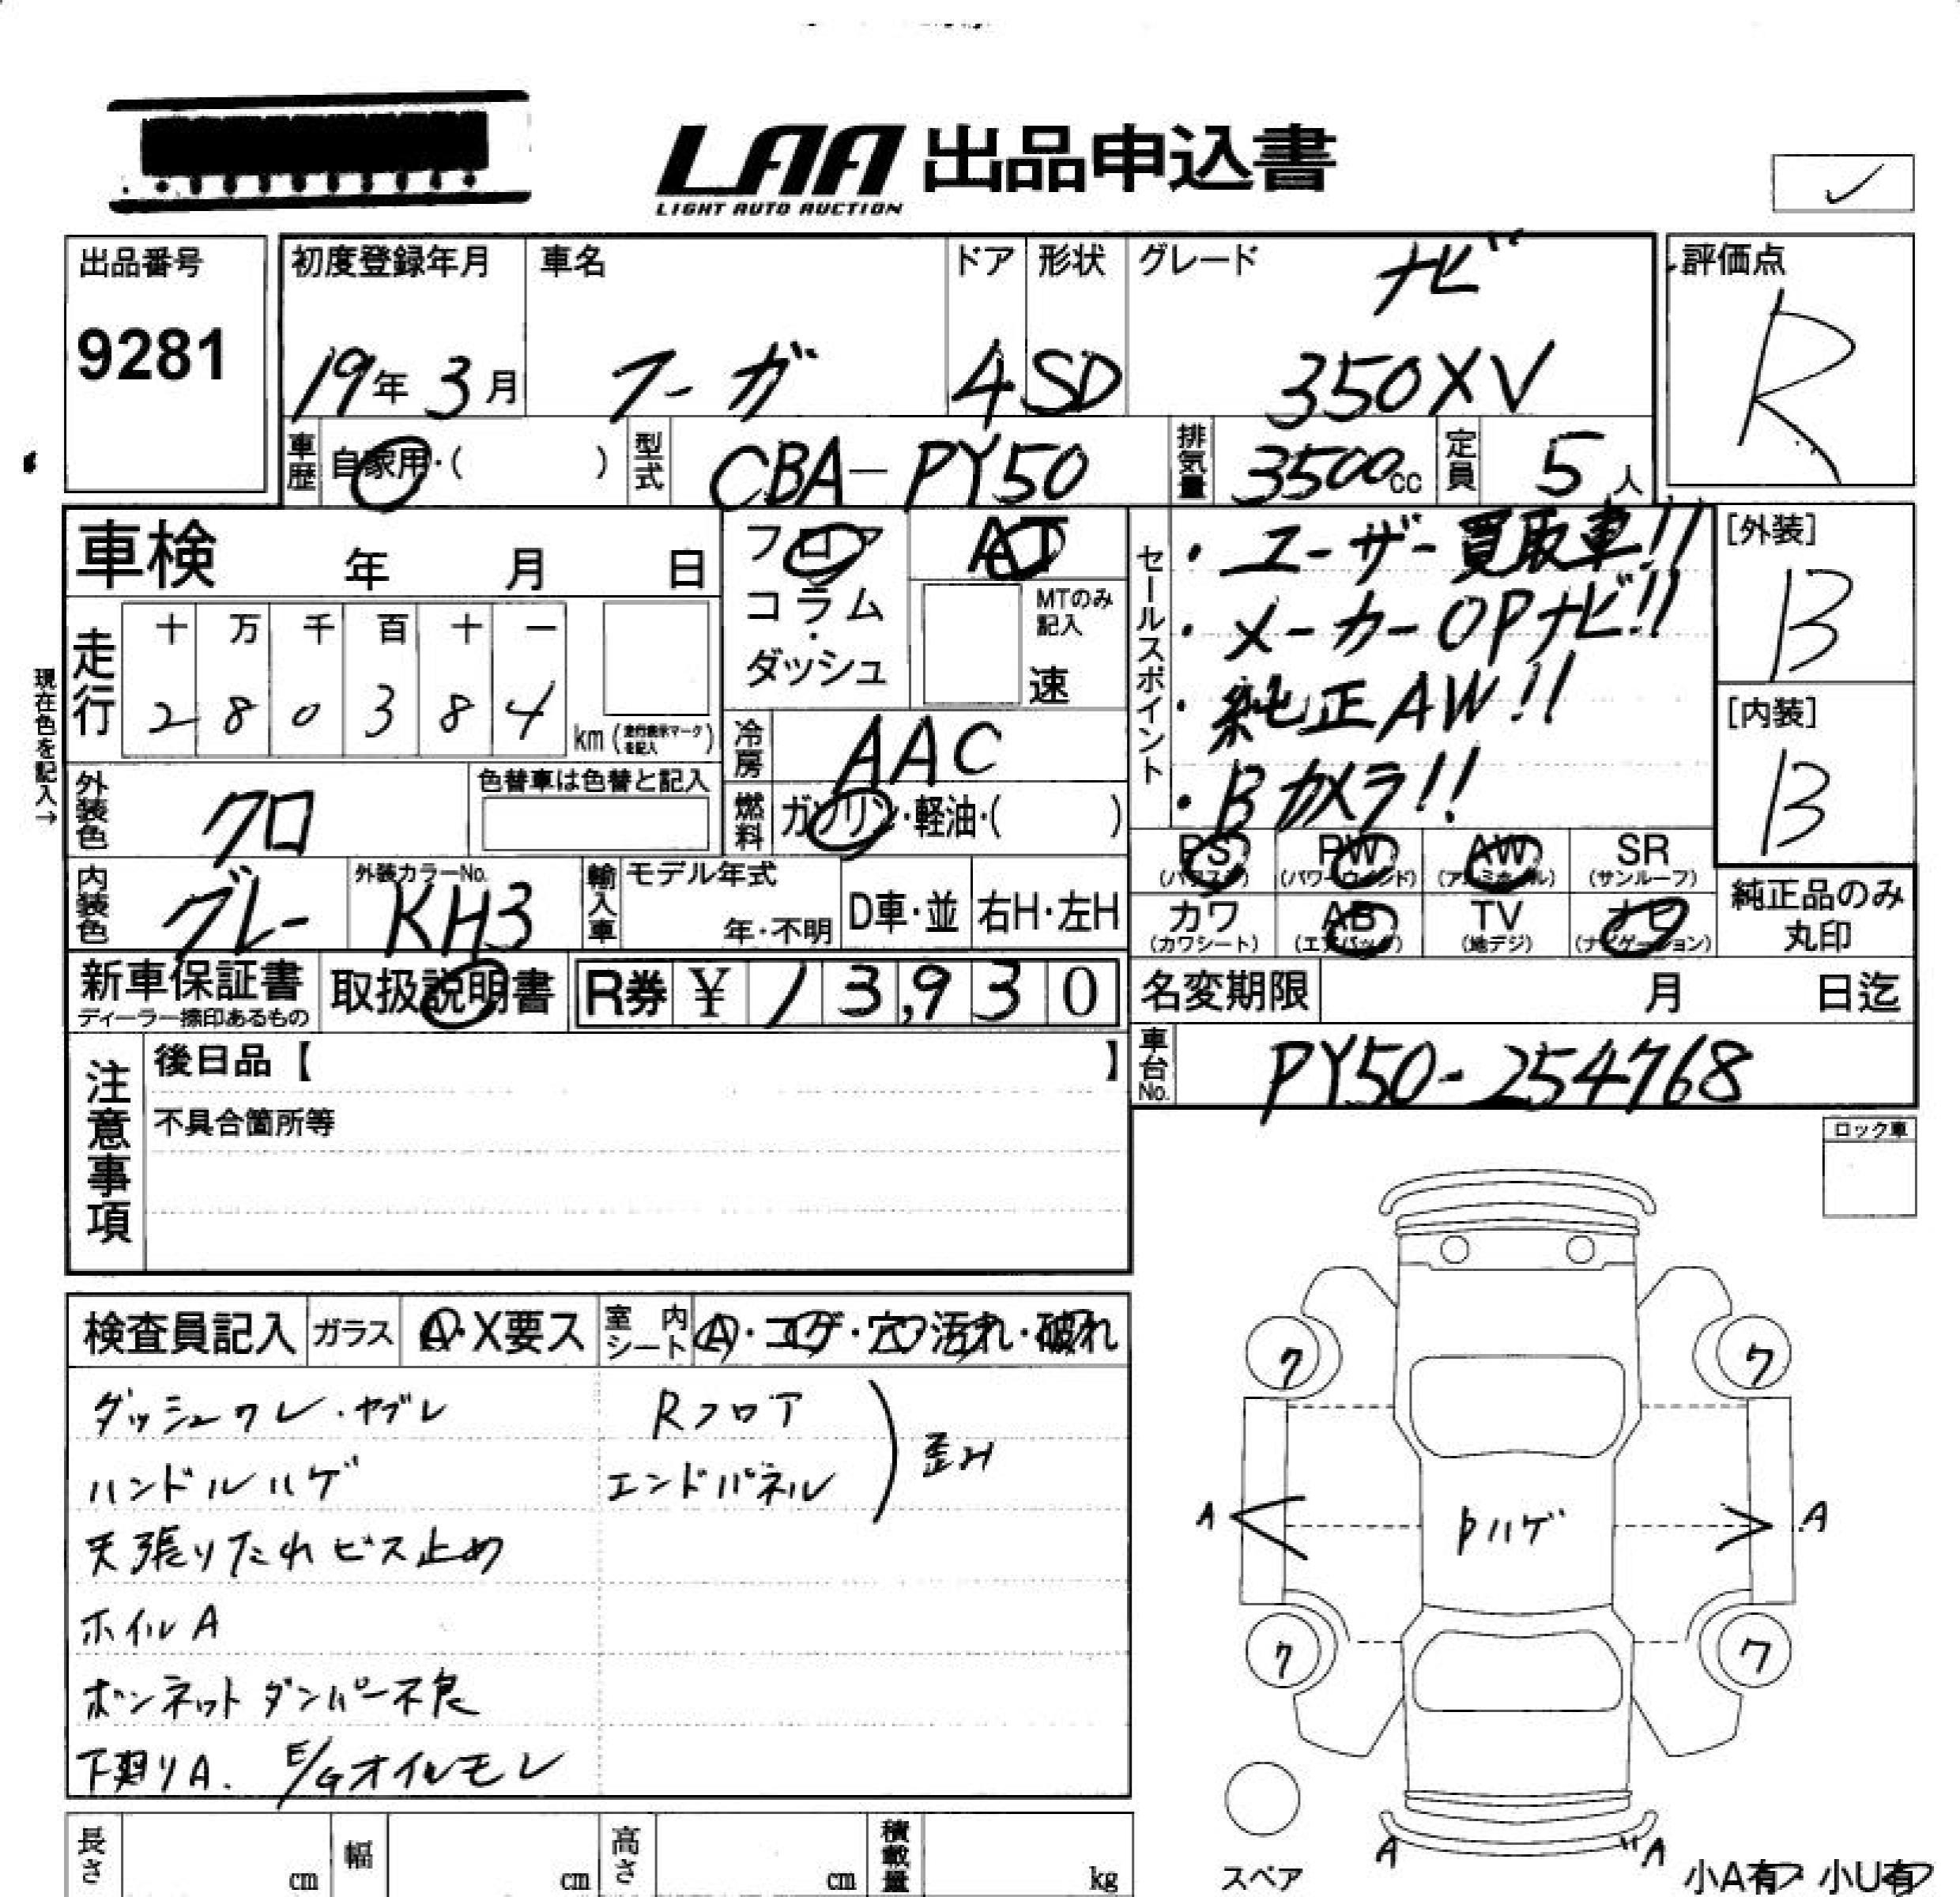 LAA 出品申込書
LIGHT AUTO AUCTION
✓
出品番号
9281
初度登録年月
19年3月
車名
フーガ
ドア
4
形状
SD
グレード
ナビ
350XV
評価点
R
車歴
自家用・( )
型式
CBA-PY50
排気量
3500cc
定員
5人
車検 年 月 日
フロア
コラム
・
ダッシュ
AT
MTのみ
記入
速
セールスポイント
・ユーザー買取車!!
・メーカーOPナビ!!
・純正AW!!
・Bカメラ!!
[外装]
B
[内装]
B
現在色を記入→
走行
十 万 千 百 十 一
2 8 0 3 8 4
km (走行表示マークを記入)
冷房
AAC
外装色
クロ
色替車は色替と記入
燃料
ガソリン・軽油・( )
PS
(パワステ)
PW
(パワーウインド)
AW
(アルミホイール)
SR
(サンルーフ)
カワ
(カワシート)
AB
(エアバッグ)
TV
(地デジ)
ナビ
(ナビゲーション)
純正品のみ
丸印
内装色
グレー
外装カラーNo.
KH3
輸入車
モデル年式
年・不明
D車・並
右H・左H
新車保証書
ディーラー捺印あるもの
取扱説明書
R券 ¥ 13,930
名変期限 月 日迄
車台No.
PY50-254768
注意事項
後日品【 】
不具合箇所等
ロック車
検査員記入
ガラス
A・X要ス
室内シート
A・コゲ・穴・汚れ・破れ
ダッシュワレ・ヤブレ
ハンドルハゲ
天張りたれビス止め
ホイルA
ボンネットダンパー不良
下廻りA. E/Gオイルモレ
Rフロア
エンドパネル
歪み
ワ
ワ
A
A
ハゲ
ワ
ワ
スペア
A
A
小A有 小U有
長さ cm
幅 cm
高さ cm
積載量 kg